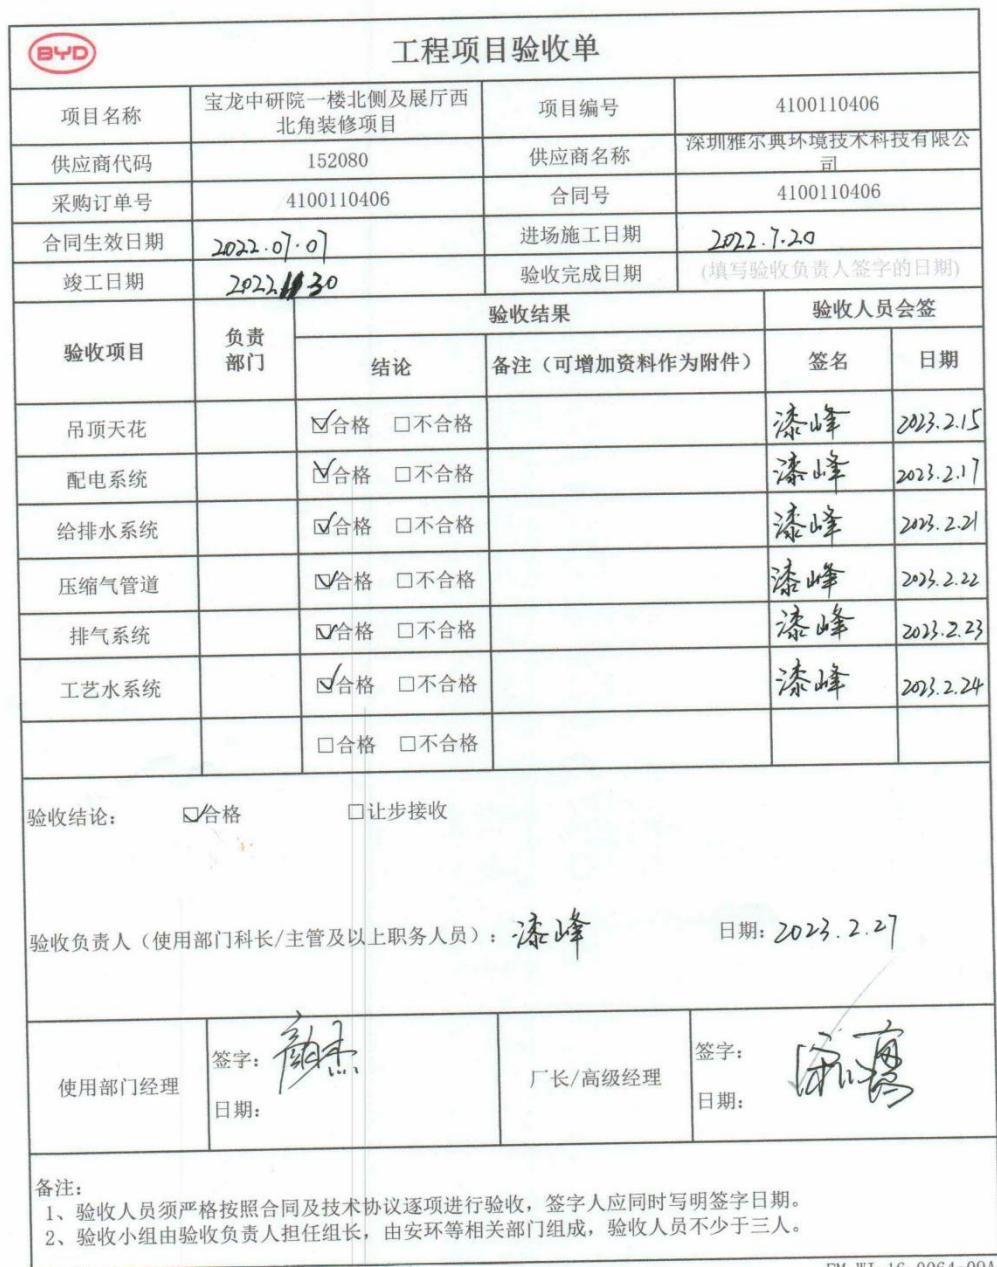 BYD
工程项目验收单
项目名称 宝龙中研院一楼北侧及展厅西北角装修项目 项目编号 4100110406
供应商代码 152080 供应商名称 深圳雅尔典环境技术科技有限公司
采购订单号 4100110406 合同号 4100110406
合同生效日期 2022.07.07 进场施工日期 2022.7.20
竣工日期 2022.11.30 验收完成日期 (填写验收负责人签字的日期)
验收项目 负责部门 验收结果 验收人员会签
结论 备注（可增加资料作为附件） 签名 日期
吊顶天花 ☑合格 □不合格 漆峰 2023.2.15
配电系统 ☑合格 □不合格 漆峰 2023.2.17
给排水系统 ☑合格 □不合格 漆峰 2023.2.21
压缩气管道 ☑合格 □不合格 漆峰 2023.2.22
排气系统 ☑合格 □不合格 漆峰 2023.2.23
工艺水系统 ☑合格 □不合格 漆峰 2023.2.24
□合格 □不合格
验收结论： ☑合格 □让步接收
验收负责人（使用部门科长/主管及以上职务人员）：漆峰 日期：2023.2.27
使用部门经理 签字： 厂长/高级经理 签字：
日期： 日期：
备注：
1、验收人员须严格按照合同及技术协议逐项进行验收，签字人应同时写明签字日期。
2、验收小组由验收负责人担任组长，由安环等相关部门组成，验收人员不少于三人。